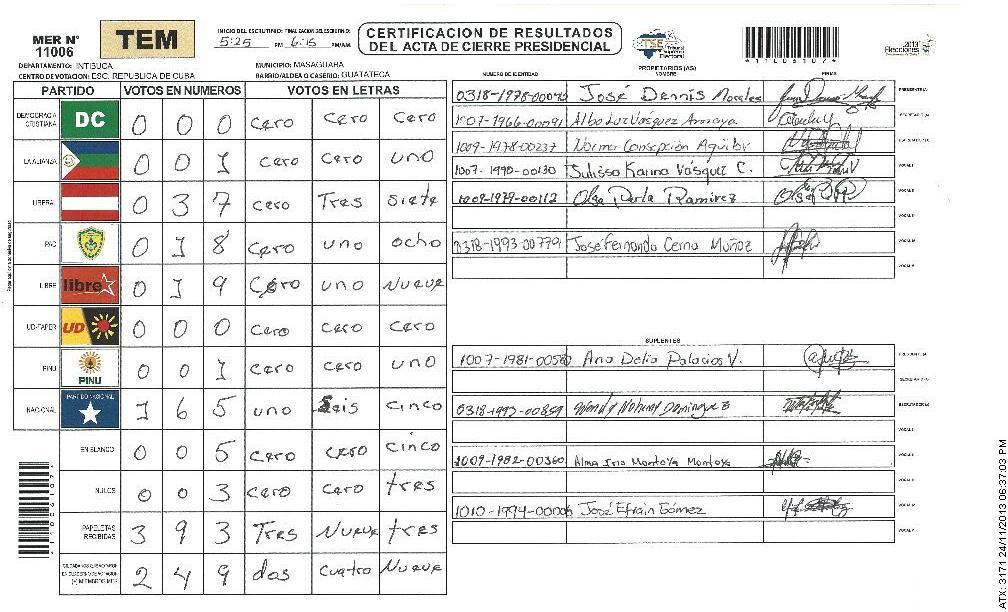 MER N° 11006
TEM
INICIO DEL ESCRUTINIO: 5:25 PM FINALIZACION DEL ESCRUTINIO: 6:15 PM/AM
CERTIFICACION DE RESULTADOS
DEL ACTA DE CIERRE PRESIDENCIAL
TSE Tribunal Supremo Electoral
Elecciones 2013
DEPARTAMENTO: INTIBUCA
MUNICIPIO: MASAGUARA
CENTRO DE VOTACION: ESC. REPUBLICA DE CUBA
BARRIO/ALDEA O CASERIO: GUATATECA
PARTIDO VOTOS EN NUMEROS VOTOS EN LETRAS
DEMOCRACIA CRISTIANA DC 0 0 0 cero cero cero
LA ALIANZA 0 0 1 cero cero uno
LIBERAL 0 3 7 cero Tres siete
PAC 0 1 8 cero uno ocho
LIBRE libre 0 1 9 cero uno Nueve
UD-FAPER UD 0 0 0 cero cero cero
PINU PINU 0 0 1 cero cero uno
NACIONAL PARTIDO NACIONAL 1 6 5 uno seis cinco
EN BLANCO 0 0 5 cero cero cinco
NULOS 0 0 3 cero cero tres
PAPELETAS RECIBIDAS 3 9 3 Tres Nueve tres
2 4 9 dos cuatro Nueve
PROPIETARIOS (AS)
NUMERO DE IDENTIDAD NOMBRE FIRMA
José Dennis Morales PRESIDENTE(A)
1007-1966-00091 Alba Luz Vasquez Amaya SECRETARIO(A)
1009-1978-00237 Norma Consepción Aguilar
1007-1990-00130 Julissa Karina Vásquez C. VOCAL I
1009-1979-00112 Olga Perla Ramirez VOCAL II
VOCAL III
0318-1993-00779 Jose Fernando Cerna Muñoz VOCAL IV
VOCAL V
SUPLENTES
1007-1981-00580 Ana Delia Palacios V. PRESIDENTE(A)
SECRETARIO(A)
0318-1993-00859
1009-1982-00360 Alma Iris Montoya Montoya
1010-1994-00006 José Efrain Gómez
11006107
ATX: 3171 24/11/2013 06:37:03 PM